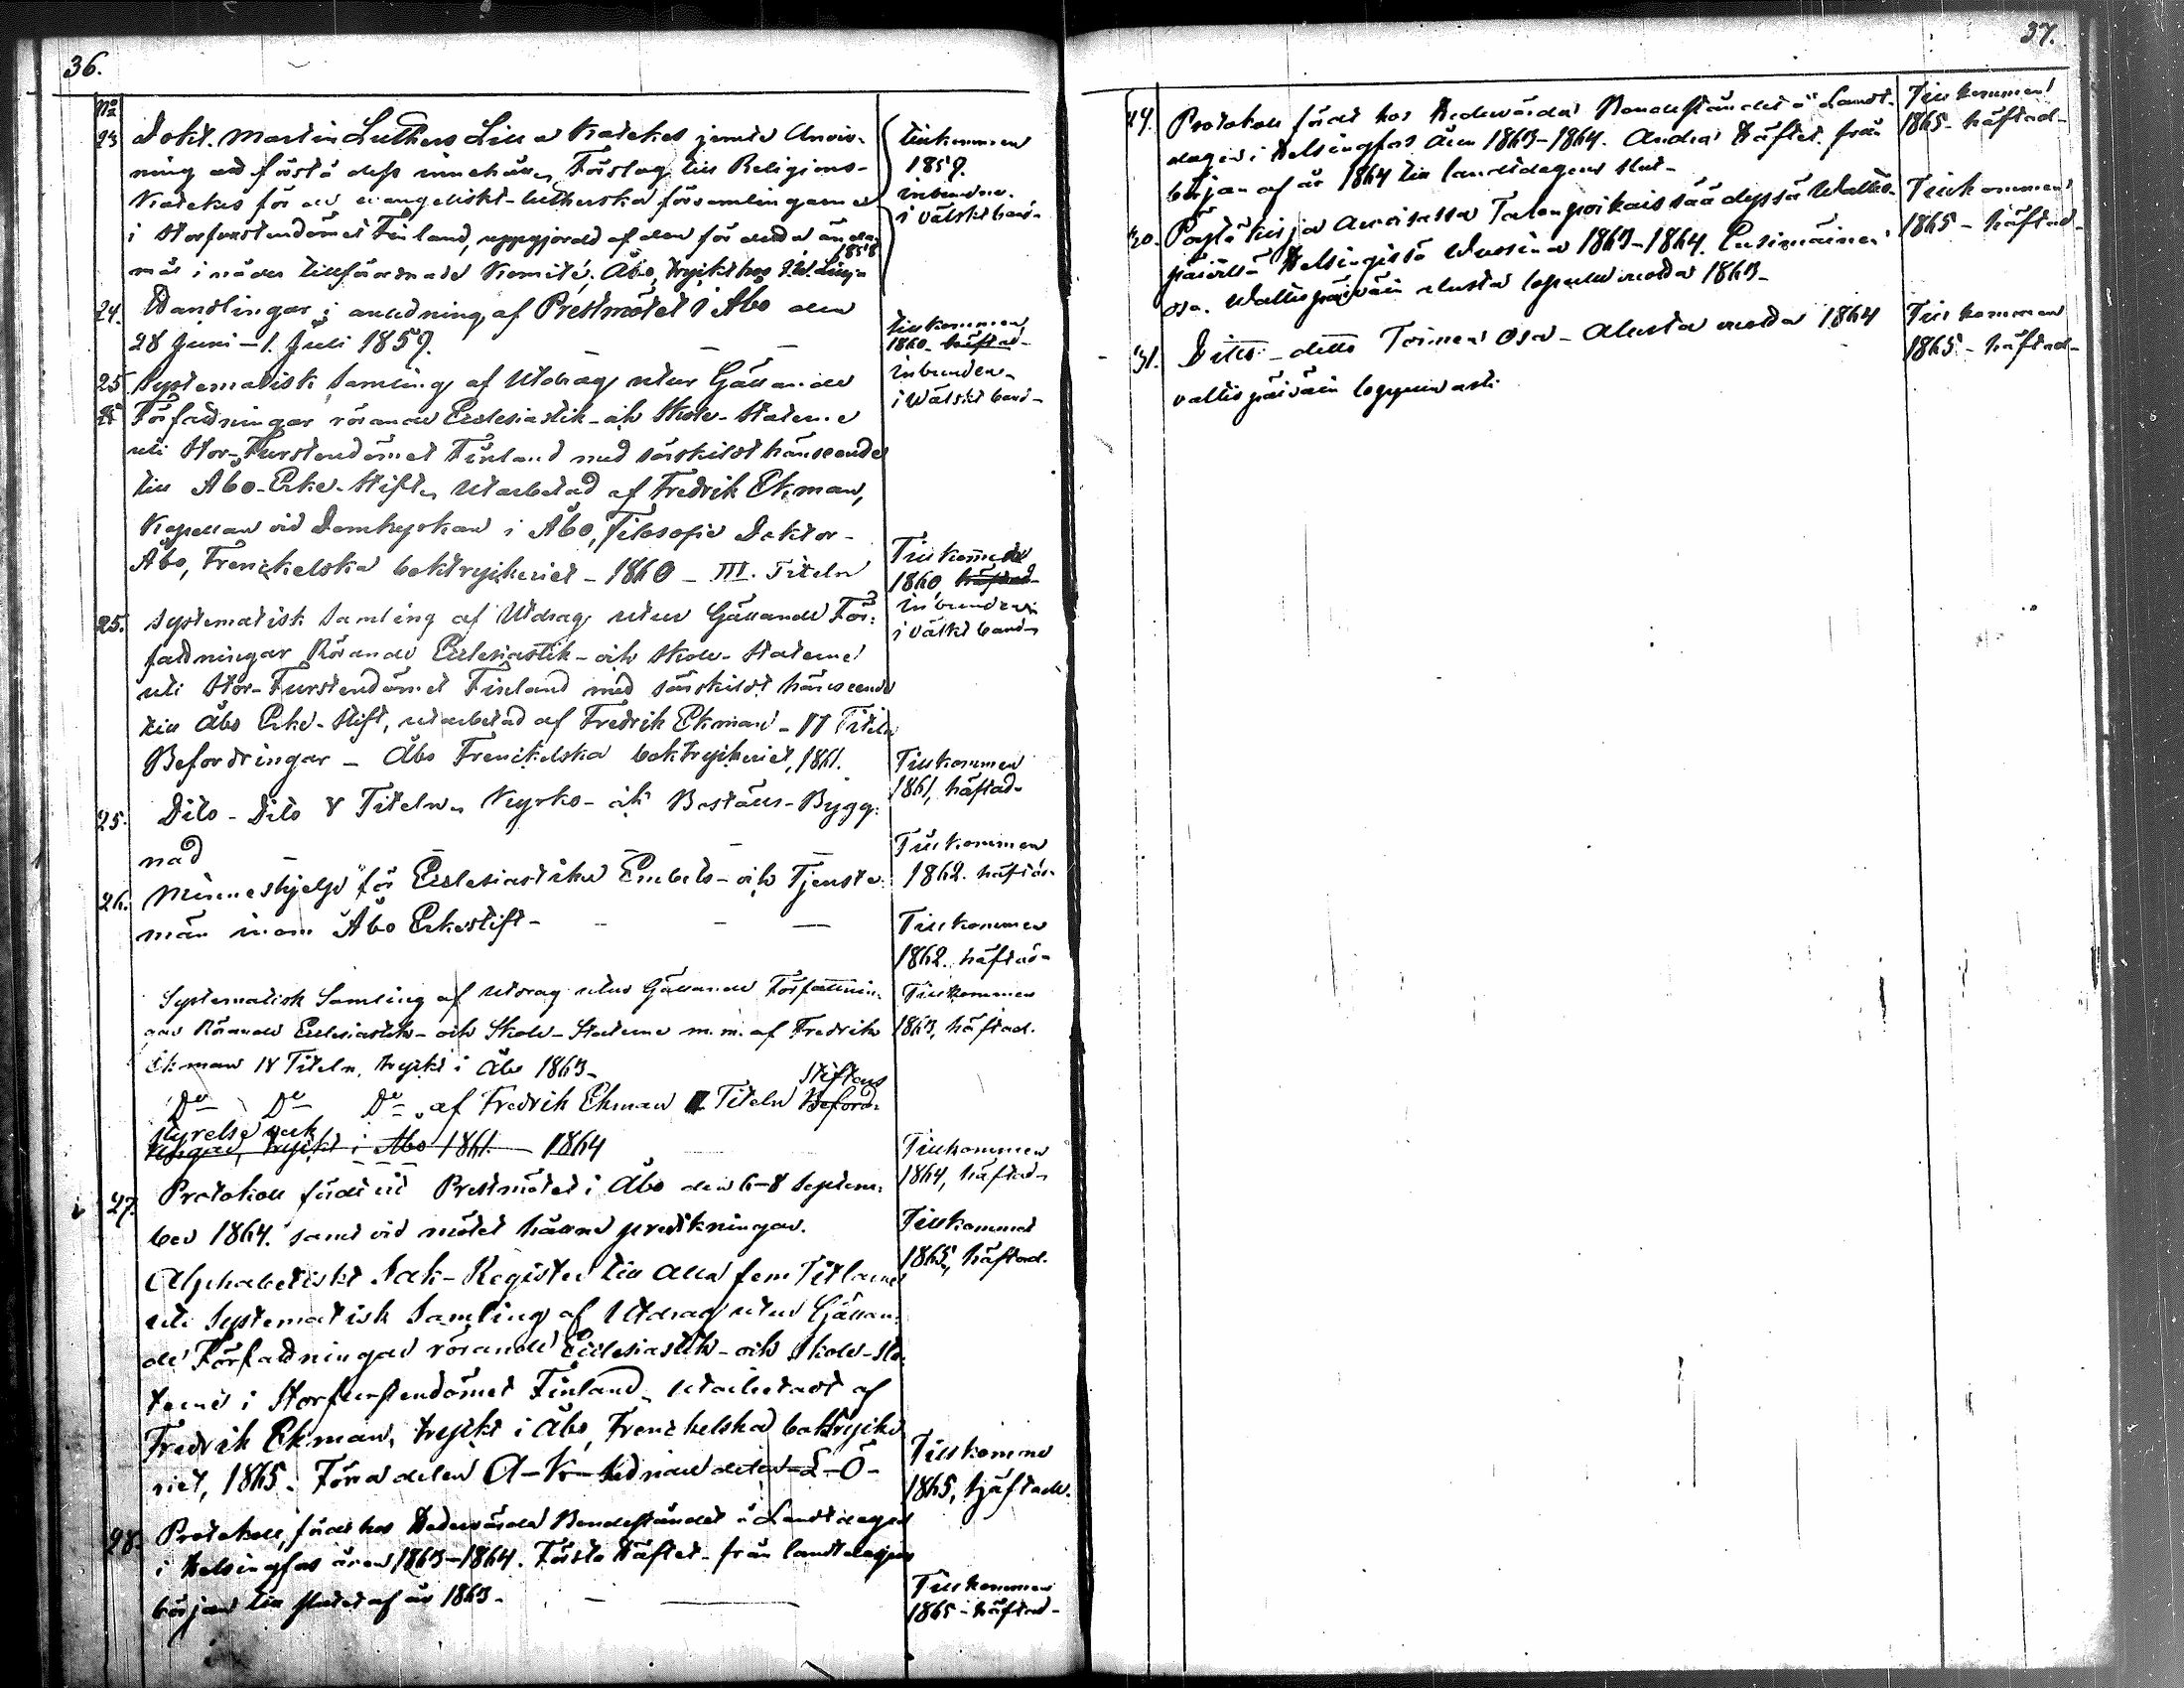 36.
No
23 Dokt. Martin Luthers Lilla Katekes jemte Anvis-
ning att förstå dess innehåll, Förslag till Religions-
Katekes för de evangeliskt-lutherska församlingarne
i Storfurstendömet Finland, uppgjordt af den för detta ända-
mål i nåder tillförordnade Komité. Åbo, tryckt hos J.W. Lillja 1858
tillkommen
1859.
inbunden
i välskt band
24. Handlingar i anledning af Prestmötet i Åbo den
28 Juni - 1. Juli 1859. — — —
tillkommen
1860 - häftad -
inbunden
i Wälskt band -
25 Systematisk Samling af Utdrag utur Gällande
25 Författningar rörande Ecclesiastik- och Skole-Staterne
uti Stor-Furstendömet Finland med särskildt hänseende
till Åbo-Erke-Stift, Utarbetad af Fredrik Ekman,
Kapellan vid Domkyrkan i Åbo, Filosofie Doktor -
Åbo, Frenckelska boktryckeriet - 1860 - III. Titeln
Tillkommen
1860 häftad
inbunden
i välskt band
25. Systematisk Samling af Utdrag utur Gällande För-
fattningar Rörande Ecclesiastik- och Skole-Staterne
uti Stor-Furstendömet Finland med särskildt hänseende
till Åbo Erke-Stift, utarbetad af Fredrik Ekman - II Titeln
Befordringar - Åbo Frenckelska boktryckeriet, 1861.
Tillkommen
1861, häftad
25. Dito - Dito V Titeln, Kyrko- och Boställs-Bygg-
nad — — — —
Tillkommen
1862. häftad
26. Minneshjelp för Ecclesiastike Embets- och Tjenste-
män inom Åbo Erkestift - - - —
Tillkommen
1862. häftad
Systematisk Samling af Utdrag utur Gällande Författnin-
gar Rörande Ecclesiastik- och Skole-Staterne m.m. af Fredrik
Ekman IV Titeln, tryckt i Åbo 1863 -
Tillkommen
1863, häftad.
Do Do Do af Fredrik Ekman I Titeln Stiftens Beford-
styrelse verk
ringar, tryckt i Åbo 1861. 1864
Tillkommen
1864, häftad
27. Protokoll fördt vid Prestmötet i Åbo den 6-8 Septem-
ber 1864. samt vid mötet hållne predikningar.
Tillkommet
1865, häftad.
Alphabetiskt Sak-Register till alla fem Titlarne
uti Systematisk Samling af Utdrag utur Gällan-
de Författningar rörande Ecclesiastik- och Skole-Sta-
terne i Storfurstendömet Finland, Utarbetadt af
Fredrik Ekman, tryckt i Åbo, Frenckelska boktrycke-
riet, 1865. Förra delen A-K- sednare delen L-Ö -
Tillkomne
1865, häftade.
28. Protokoll, fördt hos Hedervärda Bondeståndet å Landtdagen
i Helsingfors åren 1863-1864. Första Häftet - från landtdagens
början till slutet af år 1863 - — ——
Tillkommen
1865 - häftad -
37.
29. Protokoll fördt hos Hedervärda Bondeståndet å Landt-
dagen i Helsingfors åren 1863-1864. Andra Häftet från
början af år 1864 till landtdagens slut -
Tillkommen
1865 - häftad -
30. Pöytäkirja Arvoisassa Talonpoikaissäädyssä Waltio-
päivillä Helsingissä Wuosina 1863-1864. Ensimäinen
osa. Waltiopäiväin alusta loppuun vuotta 1863 -
Tillkommen
1865 - häftad -
31. Ditto - ditto Toinen Osa - Alusta vuotta 1864
valtiopäiväin loppuun asti
Tillkommen
1865 - häftad -